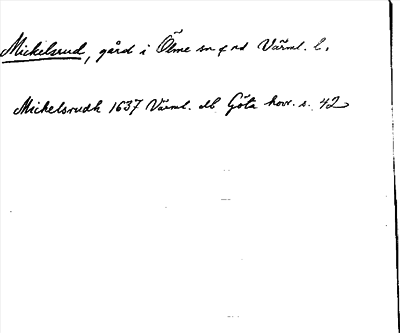 Mickelsrud, gård i Ölme sn o nd Värml. l.
Mickelsrudh 1637 Värml. db Göta hovr. s. 42